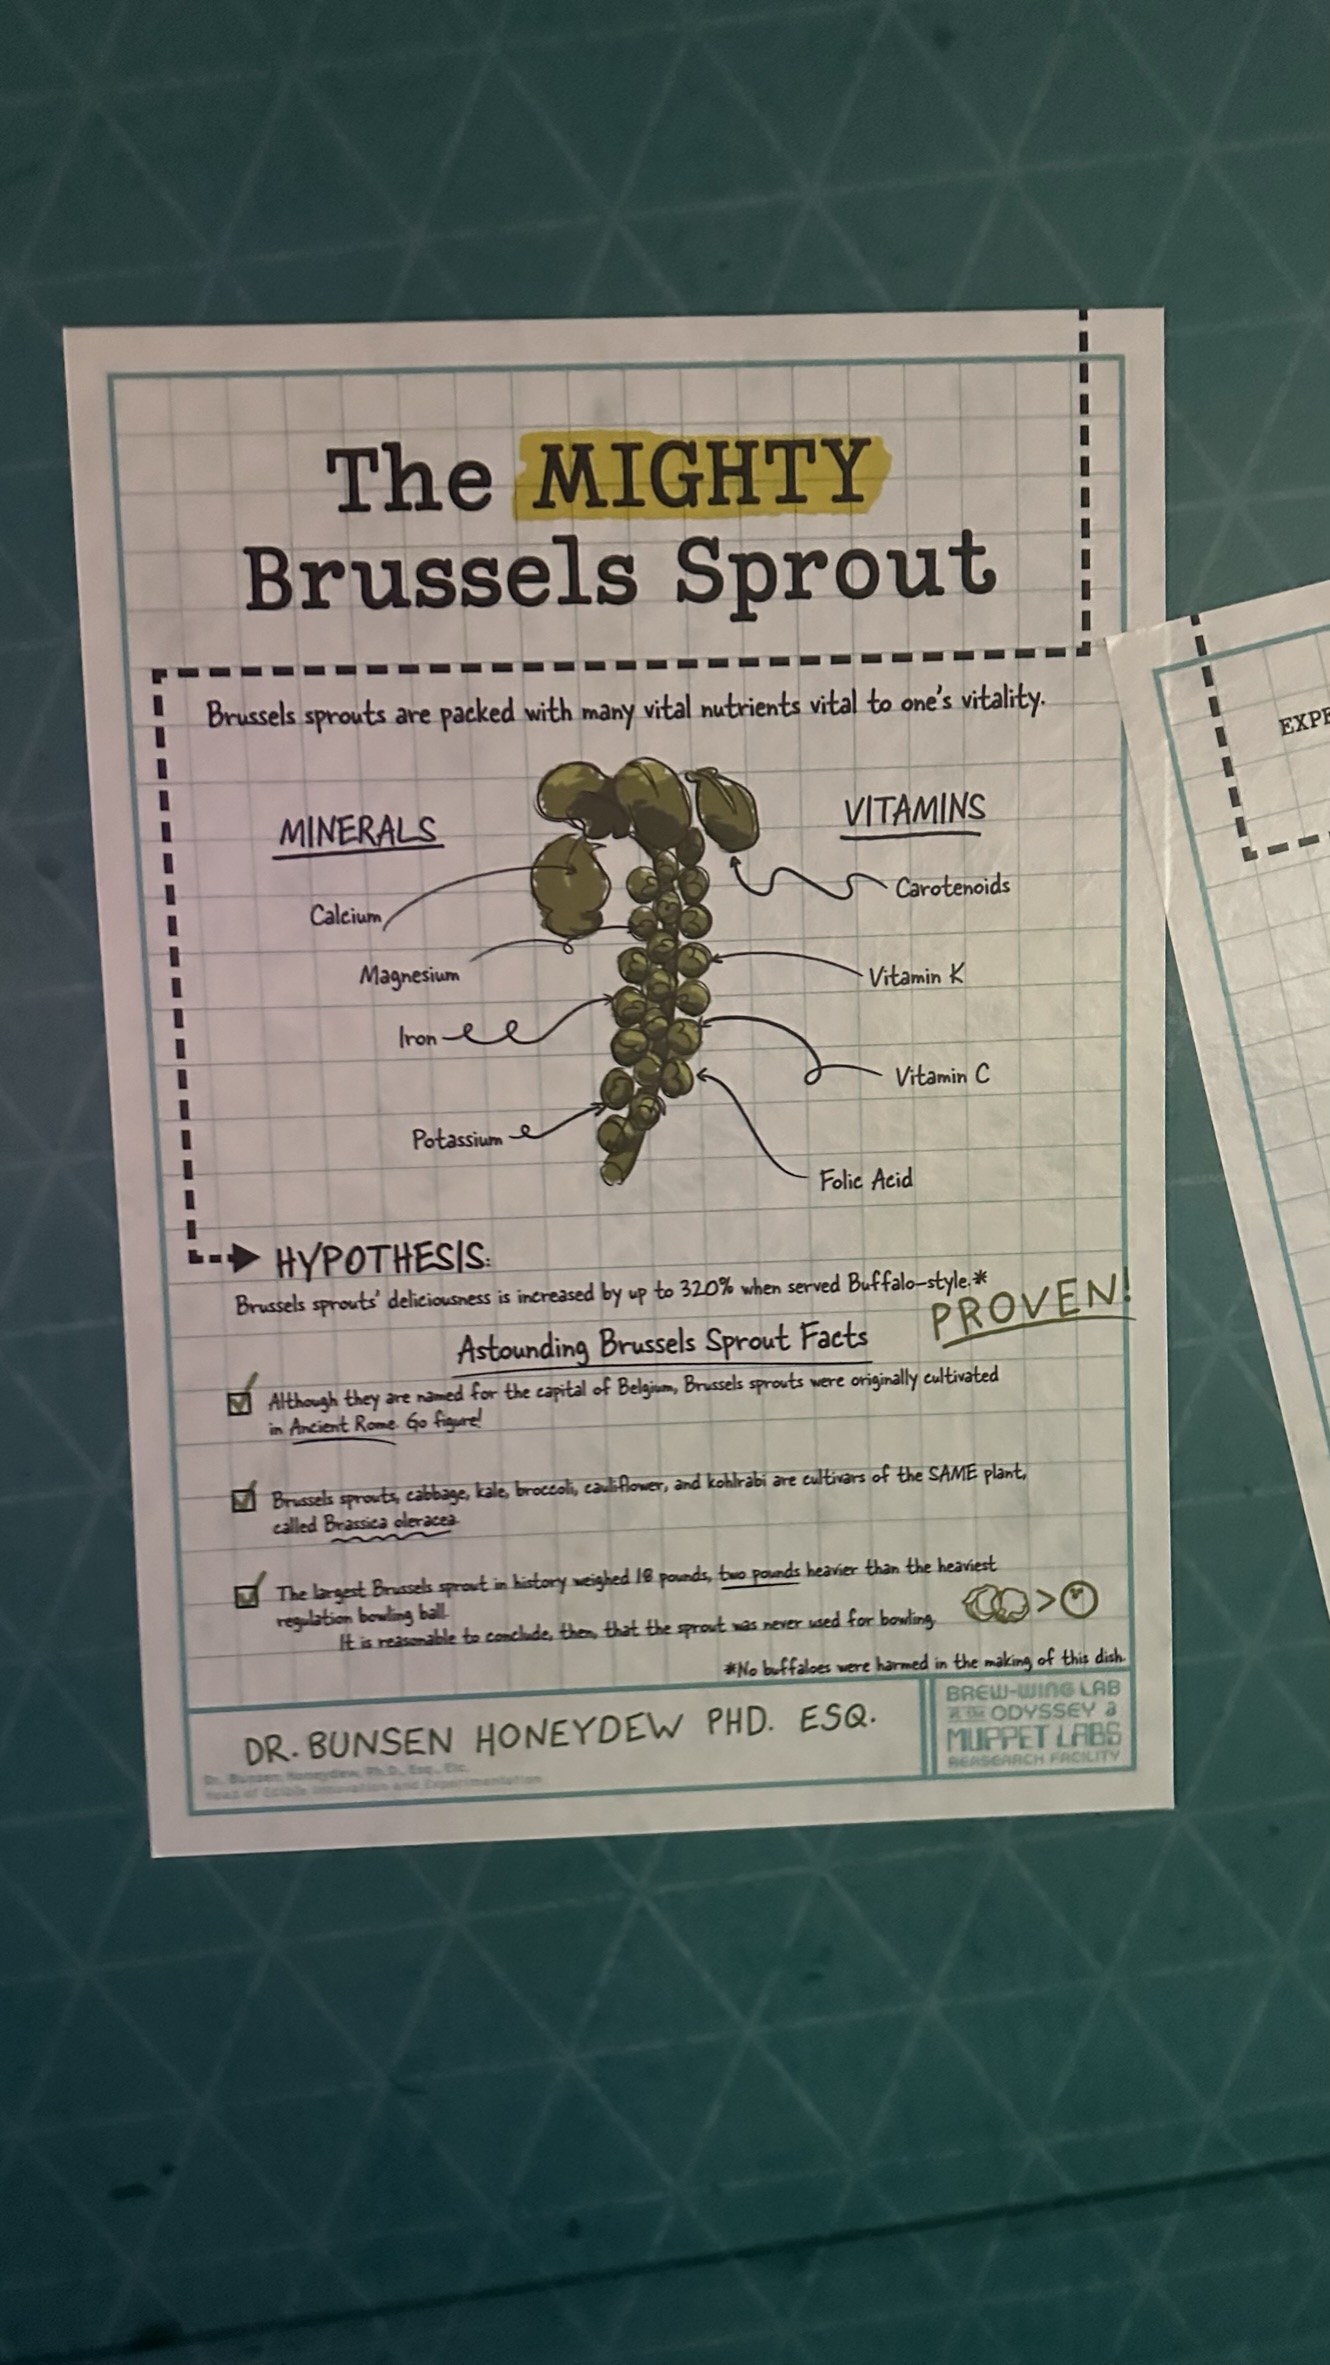 The MIGHTY
Brussels Sprout
Brussels sprouts are packed with many vital nutrients vital to one's vitality.
MINERALS
VITAMINS
Calcium
Carotenoids
Magnesium
Vitamin K
Iron
Vitamin C
Potassium
Folic Acid
HYPOTHESIS:
Brussels sprouts' deliciousness is increased by up to 320% when served Buffalo-style.*
PROVEN!
Astounding Brussels Sprout Facts
Although they are named for the capital of Belgium, Brussels sprouts were originally cultivated
in Ancient Rome. Go figure!
Brussels sprouts, cabbage, kale, broccoli, cauliflower, and kohlrabi are cultivars of the SAME plant,
called Brassica oleracea.
The largest Brussels sprout in history weighed 18 pounds, two pounds heavier than the heaviest
regulation bowling ball.
It is reasonable to conclude, then, that the sprout was never used for bowling.
*No buffaloes were harmed in the making of this dish.
DR. BUNSEN HONEYDEW PHD. ESQ.
Dr. Bunsen Honeydew, Ph.D., Esq., Etc.
Head of Edible Innovation and Experimentation
BREW-WING LAB
at the ODYSSEY a
MUPPET LABS
RERSEARCH FACILITY
EXPE